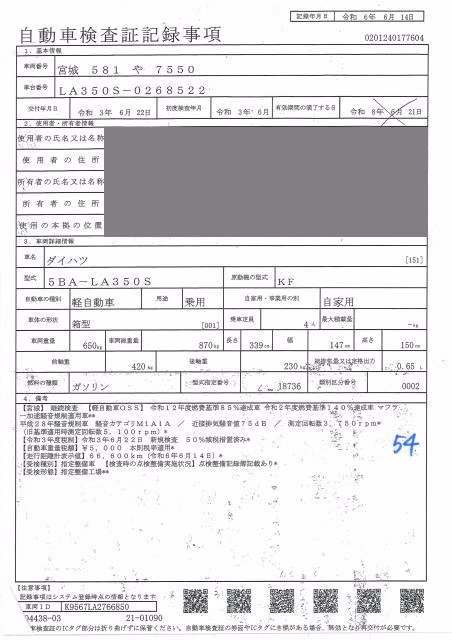 記録年月日 令和 6年 6月 14日
自動車検査証記録事項
0201240177604
1．基本情報
車両番号 宮城 581 や 7550
車台番号 LA350S-0268522
交付年月日 令和 3年 6月 22日 初度検査年月 令和 3年 6月 有効期間の満了する日 令和 8年 6月 21日
2．使用者・所有者情報
使用者の氏名又は名称
使用者の住所
所有者の氏名又は名称
所有者の住所
使用の本拠の位置
3．車両詳細情報
車名 ダイハツ [151]
型式 5BA-LA350S 原動機の型式 KF
自動車の種別 軽自動車 用途 乗用 自家用・事業用の別 自家用
車体の形状 箱型 [001] 乗車定員 4人 最大積載量 -kg
車両重量 650kg 車両総重量 870kg 長さ 339cm 幅 147cm 高さ 150cm
前軸重 420kg 後軸重 230kg 総排気量又は定格出力 0.65 L
燃料の種類 ガソリン 型式指定番号 18736 類別区分番号 0002
4．備考
【宮城】 継続検査 【軽自動車OSS】 令和12年度燃費基準85%達成車 令和2年度燃費基準140%達成車 マフラ
ー加速騒音規制適用車**
平成28年騒音規制車 騒音カテゴリM1A1A ／ 近接排気騒音値75dB ／ 測定回転数3，750rpm*
（旧基準適用時測定回転数5，100rpm）*
【令和3年度税制】令和3年6月22日 新規検査 50%減税措置済み*
【自動車重量税額】¥5，000 本則税率適用*
【走行距離計表示値】66，600km（令和6年6月14日）*
【受検種別】指定整備車 【検査時の点検整備実施状況】点検整備記録簿記載あり*
【受検形態】指定整備工場**
54
【注意事項】
記録事項はシステム登録時点の情報となります
車両ID K9567LA2766850
04438-03 21-01090
車検査証のICタグ部分は折り曲げずに保管ください。自動車検査証の券面やICタグに き損がある場合、無効となり再交付が必要です。